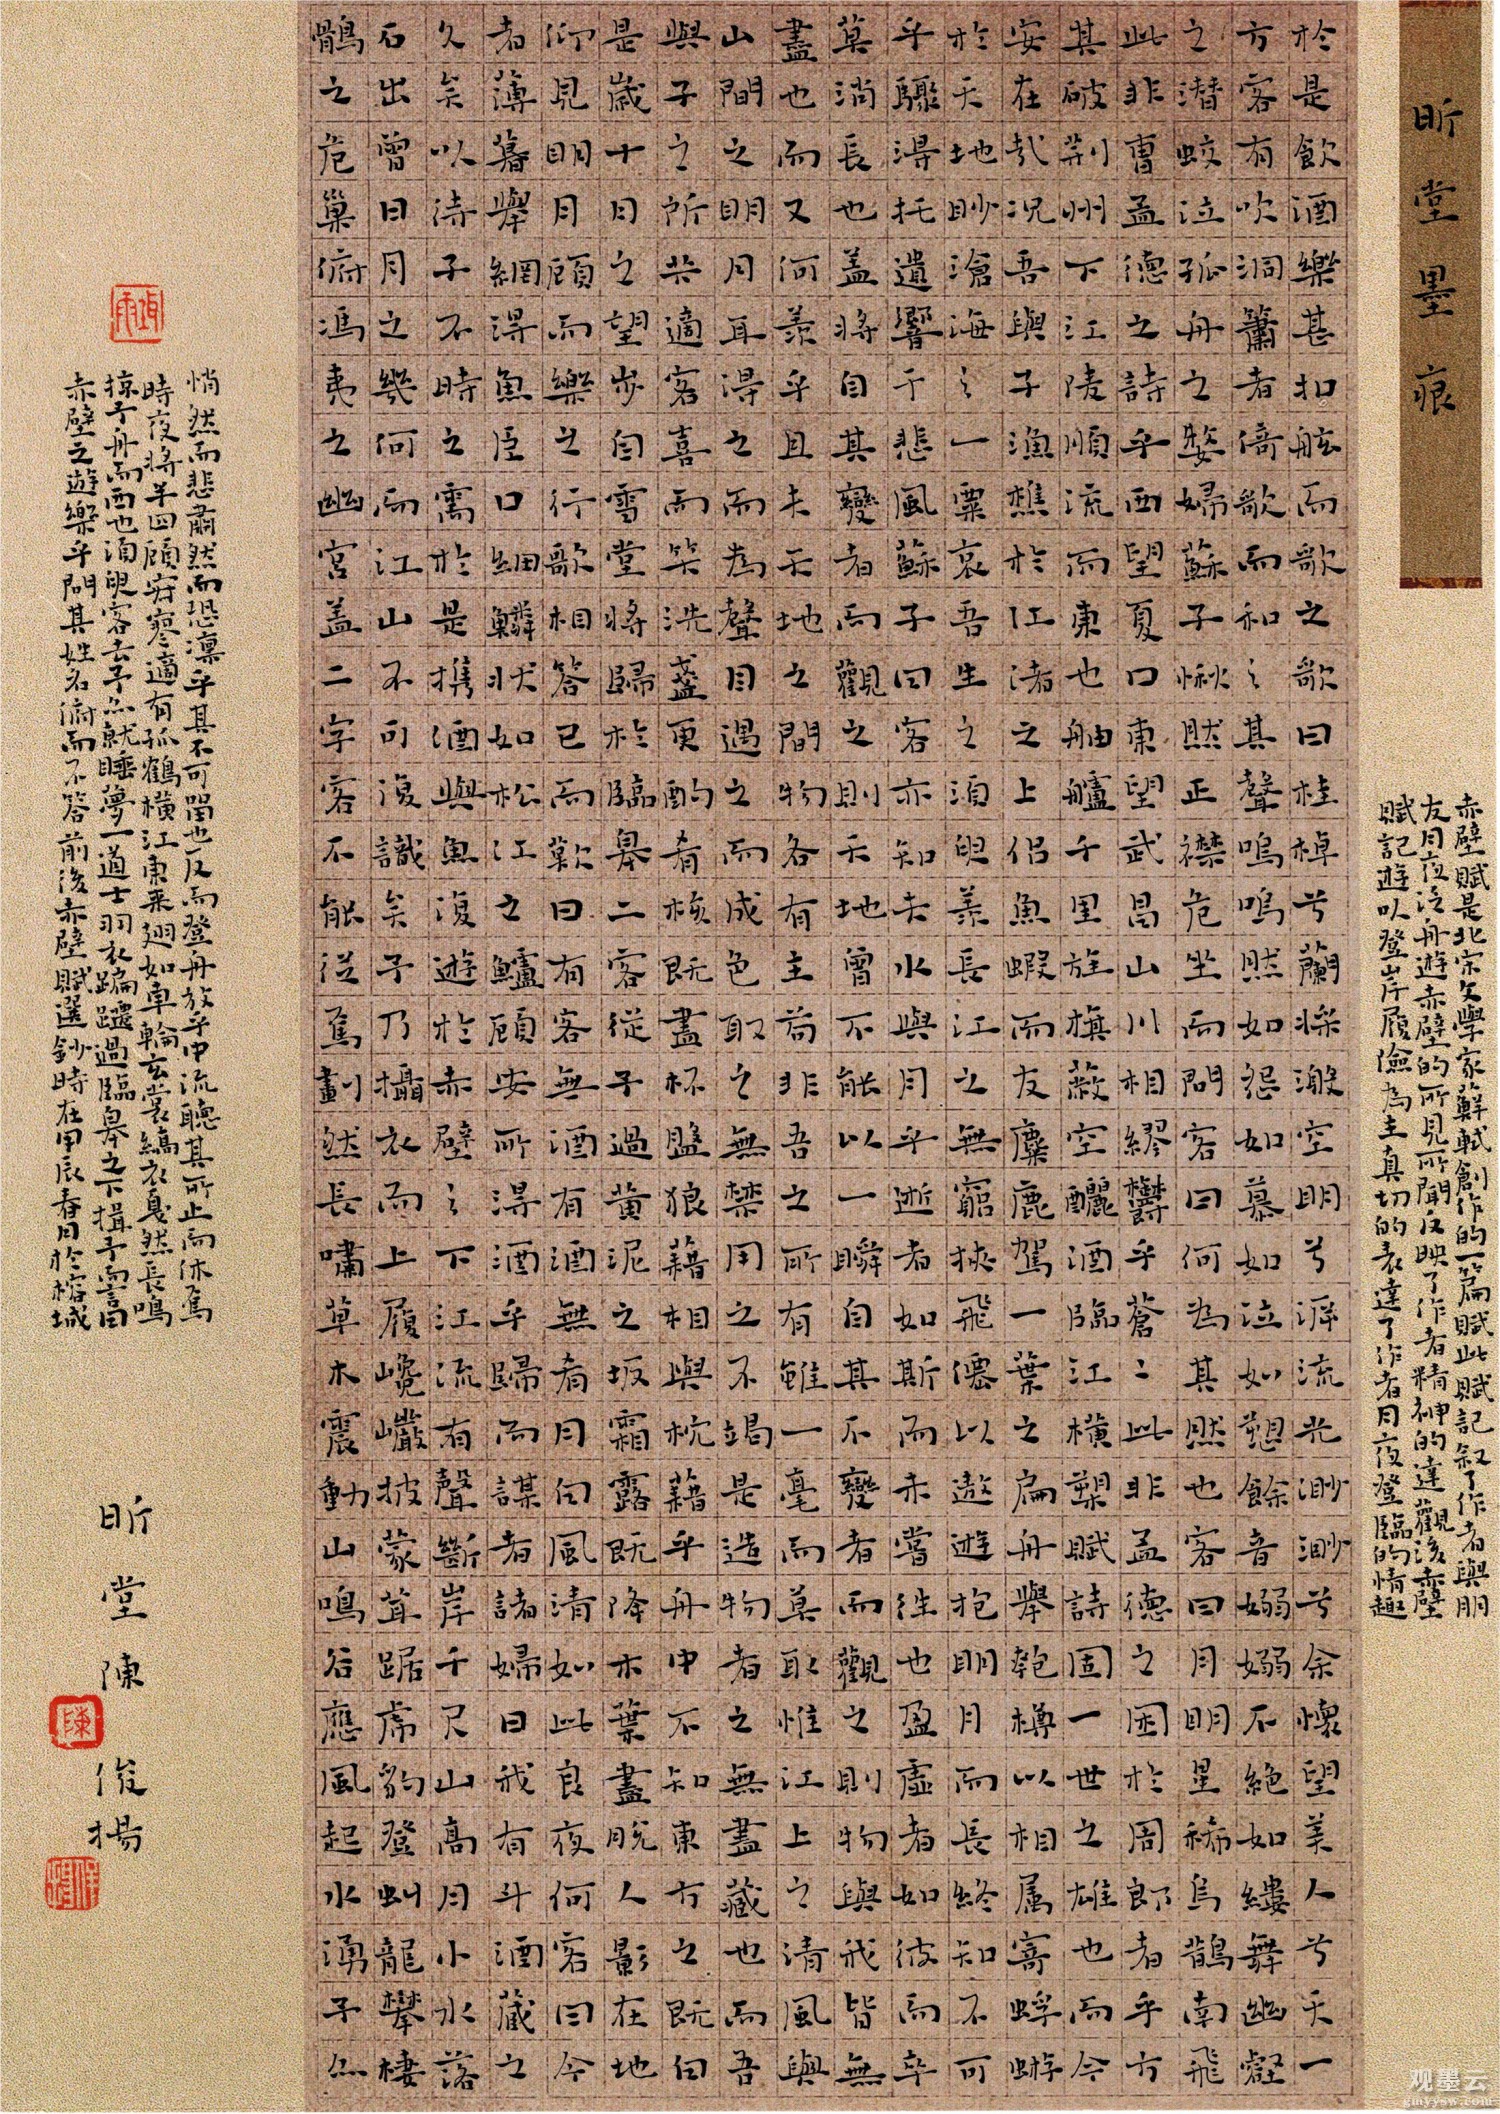 昕堂墨痕
赤壁賦是北宋文學家蘇軾創作的一篇賦此賦記叙了作者與朋
友月夜泛舟遊赤壁的所見所聞反映了作者精神的達觀後赤壁
賦記遊以登岸履險為主真切的表達了作者月夜登臨的情趣
於是飲酒樂甚扣舷而歌之歌曰桂棹兮蘭槳激空明兮泝流光渺渺兮余懷望美人兮天一
方客有吹洞簫者倚歌而和之其聲嗚嗚然如怨如慕如泣如愬餘音嫋嫋不絕如縷舞幽壑
之潛蛟泣孤舟之嫠婦蘇子愀然正襟危坐而問客曰何為其然也客曰月明星稀烏鵲南飛
此非曹孟德之詩乎西望夏口東望武昌山川相繆鬱乎蒼〻此非孟德之困於周郎者乎方
其破荊州下江陵順流而東也舳艫千里旌旗蔽空釃酒臨江橫槊賦詩固一世之雄也而今
安在哉況吾與子漁樵於江渚之上侶魚蝦而友麋鹿駕一葉之扁舟舉匏樽以相属寄蜉蝣
於天地眇滄海之一粟哀吾生之須臾羨長江之無窮挾飛僊以遨遊抱明月而長終知不可
乎驟得托遺響于悲風蘇子曰客亦知夫水與月乎逝者如斯而未嘗往也盈虛者如彼而卒
莫消長也盖將自其變者而觀之則天地曾不能以一瞬自其不變者而觀之則物與我皆無
盡也而又何羨乎且夫天地之間物各有主苟非吾之所有雖一毫而莫取惟江上之清風與
山間之明月耳得之而為聲目遇之而成色取之無禁用之不竭是造物者之無盡藏也而吾
與子之所共適客喜而笑洗盞更酌肴核既盡杯盤狼藉相與枕藉乎舟中不知東方之既白
是歲十月之望步自雪堂將歸於臨皋二客從予過黃泥之坂霜露既降木葉盡脫人影在地
仰見明月顧而樂之行歌相答已而歎曰有客無酒有酒無肴月白風清如此良夜何客曰今
者薄暮舉網得魚臣口細鱗狀如松江之鱸顧安所得酒乎歸而謀者諸婦曰我有斗酒藏之
久矣以待子不時之需於是攜酒與魚復遊於赤壁之下江流有聲斷岸千尺山高月小水落
石出曾日月之幾何而江山不可復識矣予乃攝衣而上履巉巖披蒙茸踞虎豹登虬龍攀棲
鶻之危巢俯馮夷之幽宮盖二字客不能從焉劃然長嘯草木震動山鳴谷應風起水湧予亦
悄然而悲肅然而恐凜乎其不可留也反而登舟放乎中流聽其所止而休焉
時夜將半四顧寂寥適有孤鶴橫江東来翅如車輪玄裳縞衣戛然長鳴
掠予舟而西也須臾客去予亦就睡夢一道士羽衣蹁躚過臨皋之下揖予而言曰
赤壁之遊樂乎問其姓名俯而不答前後赤壁賦選鈔時在甲辰春月於榕城
昕堂陳俊揚
陳
观墨云
gmyysw.com